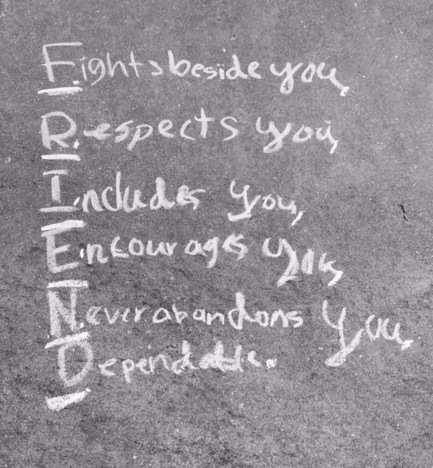 Fights beside you,
Respects you,
Includes you,
Encourages you,
Never abandons you,
Dependable.